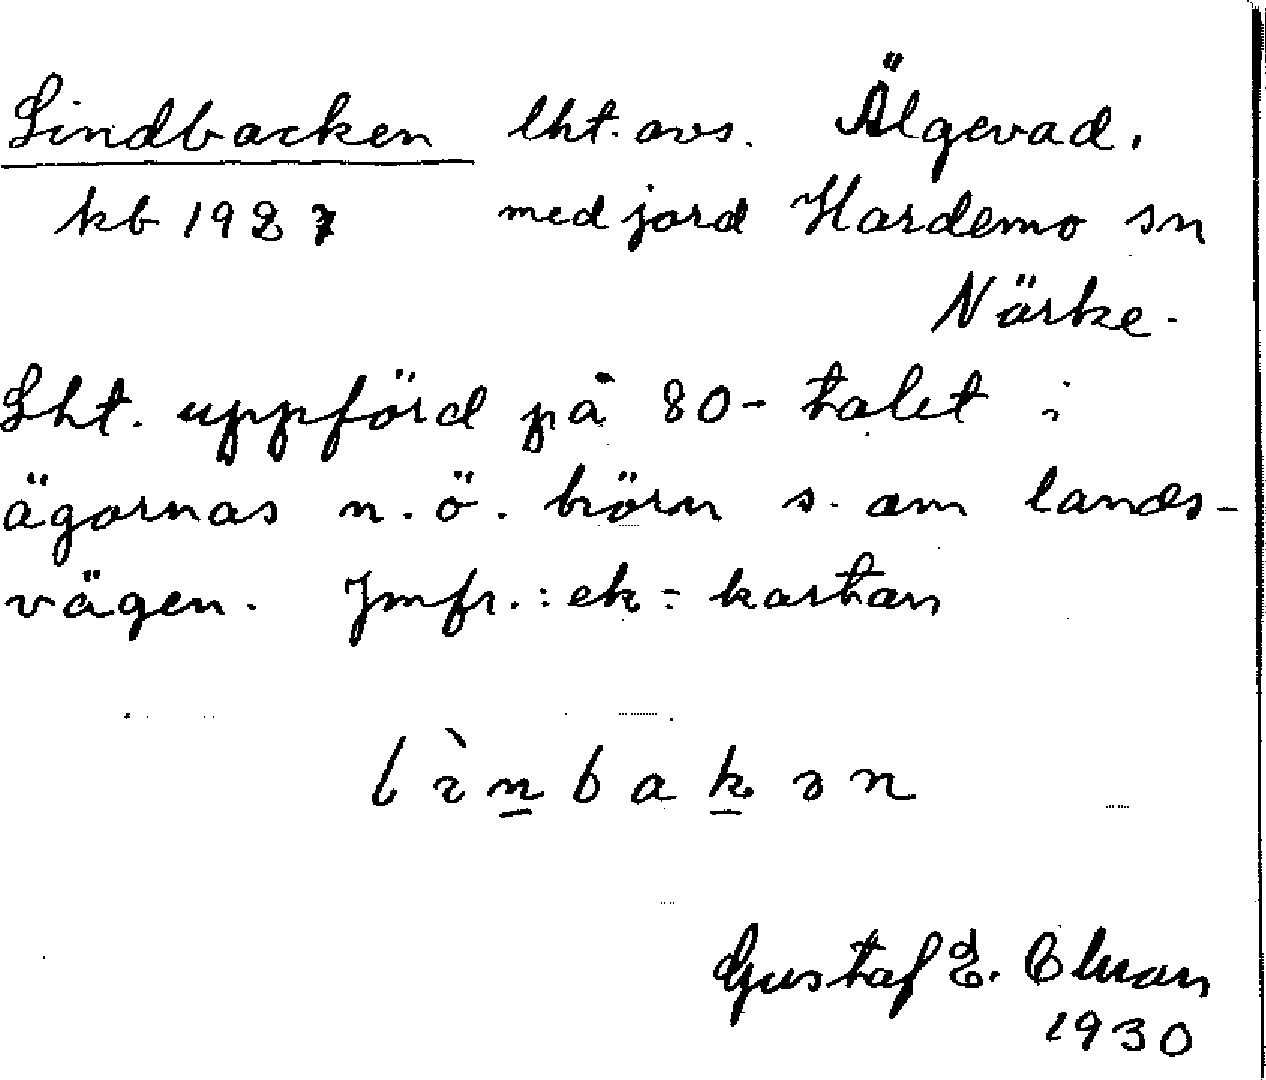 Lindbacken lht. avs. Älgevad.
kb 1927 med jord Hardemo sn
Närke.
Lht. uppförd på 80-talet i
ägornas n.ö. hörn s. om lands-
vägen. Jmfr.: ek-kartan
lìnbakən
Gustaf E.
1930